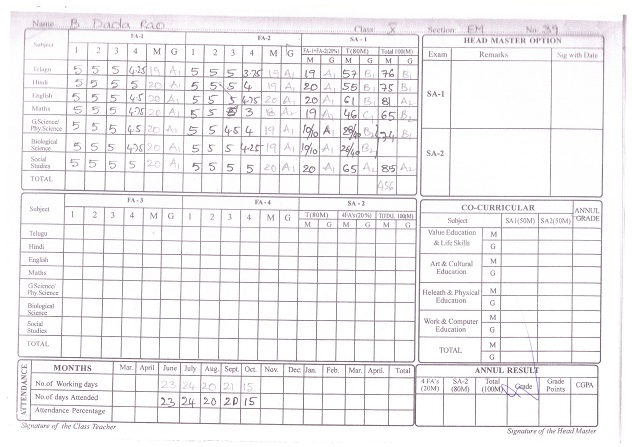 Name B Dada Rao Class: X Section: EM No. 39
Subject FA-1 FA-2 SA-1 HEAD MASTER OPTION
1 2 3 4 M G 1 2 3 4 M G FA-1+FA-2(20%) T(80M) Total 100(M) Exam Remarks Sig with Date
M G M G M G
Telugu 5 5 5 4.25 19 A1 5 5 5 3.75 19 A1 19 A1 57 B1 76 B1
Hindi 5 5 5 5 20 A1 5 5 5 4 19 A1 20 A1 55 B1 75 B1
English 5 5 5 4.5 20 A1 5 5 5 4.75 20 A1 20 A1 61 B1 81 A2
Maths 5 5 5 4.75 20 A1 5 5 3 18 A2 19 A1 46 C1 65 B2
SA-1
G.Science/ Phy.Science 5 5 5 4.5 20 A1 5 5 4.5 4 19 A1 10/10 A1 B2 74 B1
Biological Science 5 5 5 4.75 20 A1 5 5 5 4.25 19 A1 10/10 A1 B2
Social Studies 5 5 5 5 20 A1 5 5 5 5 20 A1 20 A1 65 A2 85 A2
SA-2
TOTAL 456
Subject FA-3 FA-4 SA-2
1 2 3 4 M G 1 2 3 4 M G T(80M) 4FA's(20%) TOTAL 100(M)
M G M G M G
Telugu
Hindi
English
Maths
G.Science/ Phy.Science
Biological Science
Social Studies
TOTAL
CO-CURRICULAR ANNUL GRADE
Subject SA1(50M) SA2(50M)
Value Education & Life Skills M G
Art & Cultural Education M G
Heleath & Physical Education M G
Work & Computer Education M G
TOTAL M G
ATTENDANCE
MONTHS Mar. April June July Aug. Sept. Oct. Nov. Dec Jan. Feb. Mar. April. Total
No.of Working days 23 24 20 21 15
No.of days Attended 23 24 20 20 15
Attendance Percentage
ANNUL RESULT
4 FA's (20M) SA-2 (80M) Total (100M) Grade Grade Points CGPA
Signature of the Class Teacher Signature of the Head Master